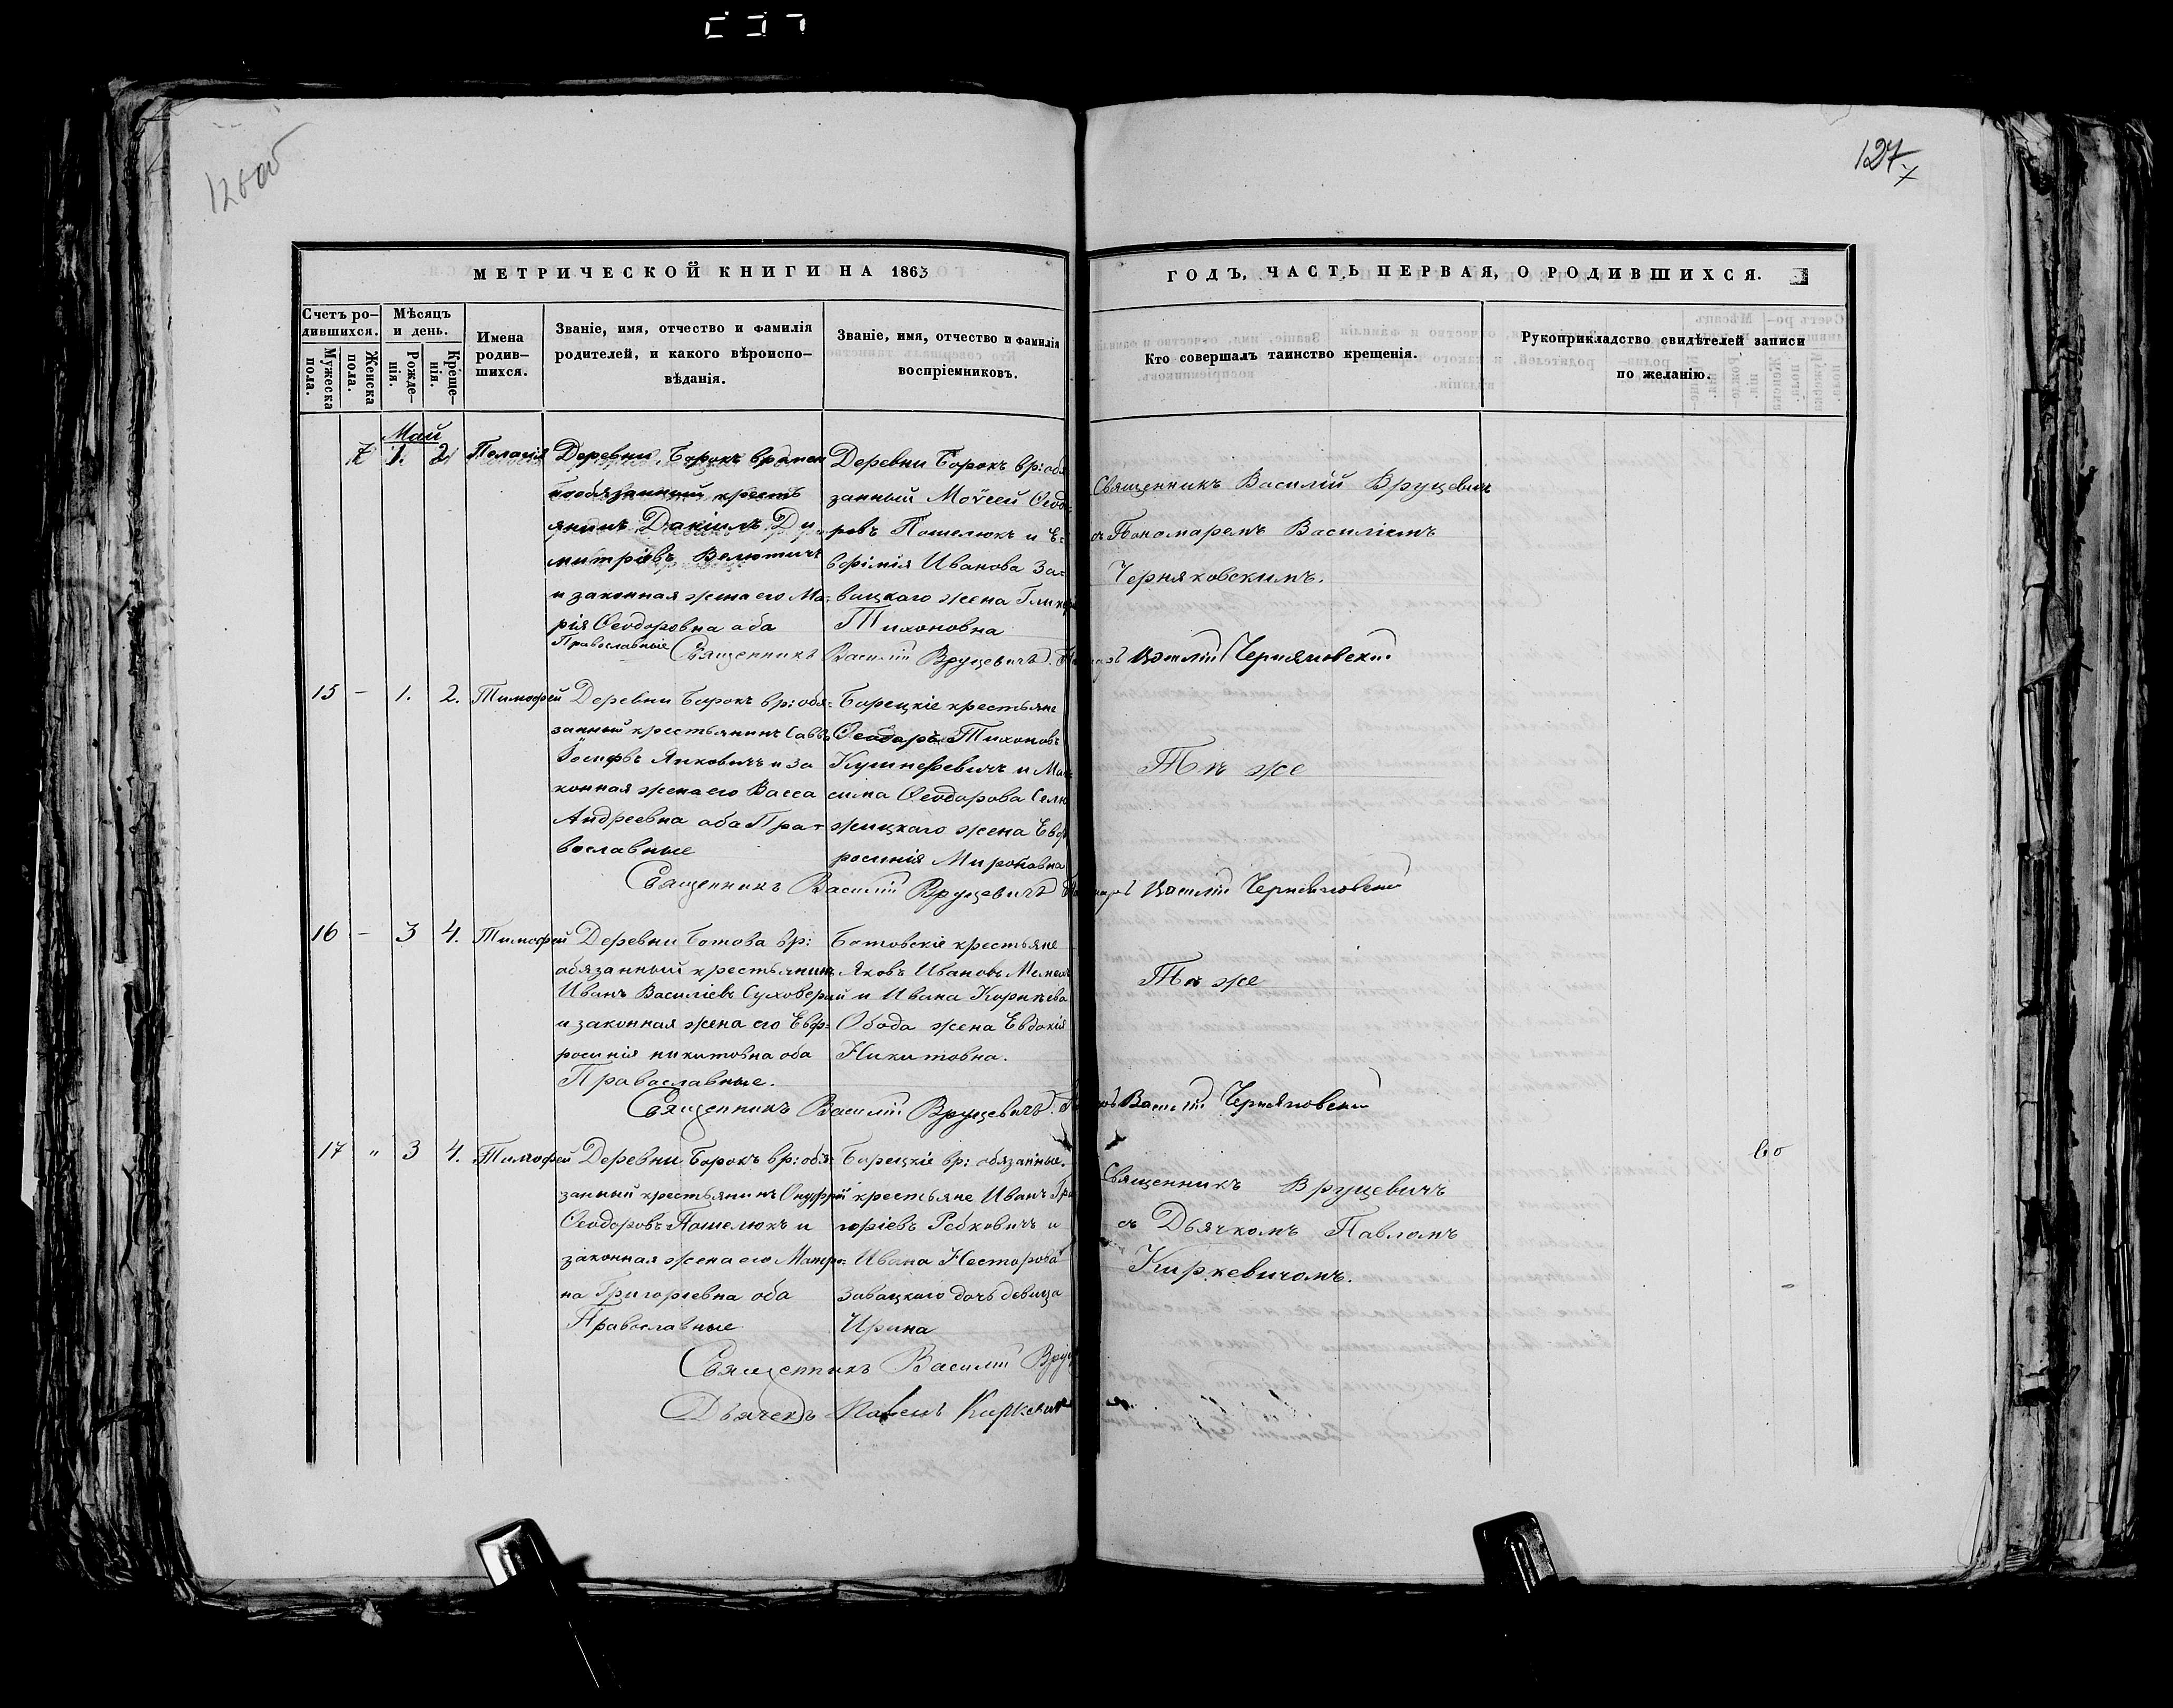 126об
127
МЕТРИЧЕСКОЙ КНИГИ НА 1863
ГОДЪ, ЧАСТЬ ПЕРВАЯ, О РОДИВШИХСЯ.
Счетъ ро-
дившихся.
Мужеска
пола.
Женска
пола.
Мѣсяцъ
и день.
Рожде-
нія.
Креще-
нія.
Имена
родив-
шихся.
Званіе, имя, отчество и фамилія
родителей, и какого вѣроиспо-
вѣданія.
Званіе, имя, отчество и фамилія
воспріемниковъ.
Кто совершалъ таинство крещенія.
Рукоприкладство свидѣтелей записи
по желанію.
Май
7 1. 2. Пелагія
Деревни Борокъ времен
нообязанный кресть
янинъ Даніилъ Ди
митріевъ Велютичъ
и законная жена его Ма-
рія Ѳеодоровна оба
Православные
Деревни Борокъ вр: обя
занный Моѵсей Ѳеодо
ровъ Пошелюкъ и Е-
вѳімія Иванова За-
вацкаго жена Гликерія
Тихоновна
Священникъ Василій Вруцевичъ
съ Пономаремъ Василіемъ
Черняковскимъ.
Священникъ Василій Вруцевичъ. Василій Черняковскій
15 – 1. 2. Тимофей
Деревни Борокъ вр: обя-
занный крестьянинъ Савва
Іосифъ Янковичъ и за
конная жена его Васса
Андреевна оба Пра-
вославные
Борецкіе крестьяне
Ѳеодоръ Тихоновъ
Кушнеревичъ и Мак
сима Ѳеодорова
жена Евф
росинія Мироновна
Тѣ же
Священникъ Василій Вруцевичъ Василій Черняковскій
16 – 3 4. Тимофей
Деревни Ботова вр:
обязанный крестьянинъ
Иванъ Василіевъ Суховерій
и законная жена его Евф-
росинія никитовна оба
Православные.
Ботовскіе крестьяне
Яковъ Ивановъ
и Ивана Корнѣева
Обода жена Евдокія
Никитовна.
Тѣ же
Священникъ Василій Вруцевичъ. Василій Черняковскій
17 „ 3 4. Тимофей
Деревни Борокъ вр: обя-
занный крестьянинъ Онуфрій
Ѳеодоровъ Пошелюкъ и
законная жена его Матро-
на Григорьевна оба
Православные
Борецкіе вр: обязанные
крестьяне Иванъ Гри
горіевъ Рабковичъ и
Ивана Несторова
Завацкаго дочь девица
Ирина
Священникъ Вруцевичъ
съ Дьячкомъ Павломъ
Киркевичомъ.
Священникъ Василій Вруц
Дьячекъ Павелъ Киркевичъ